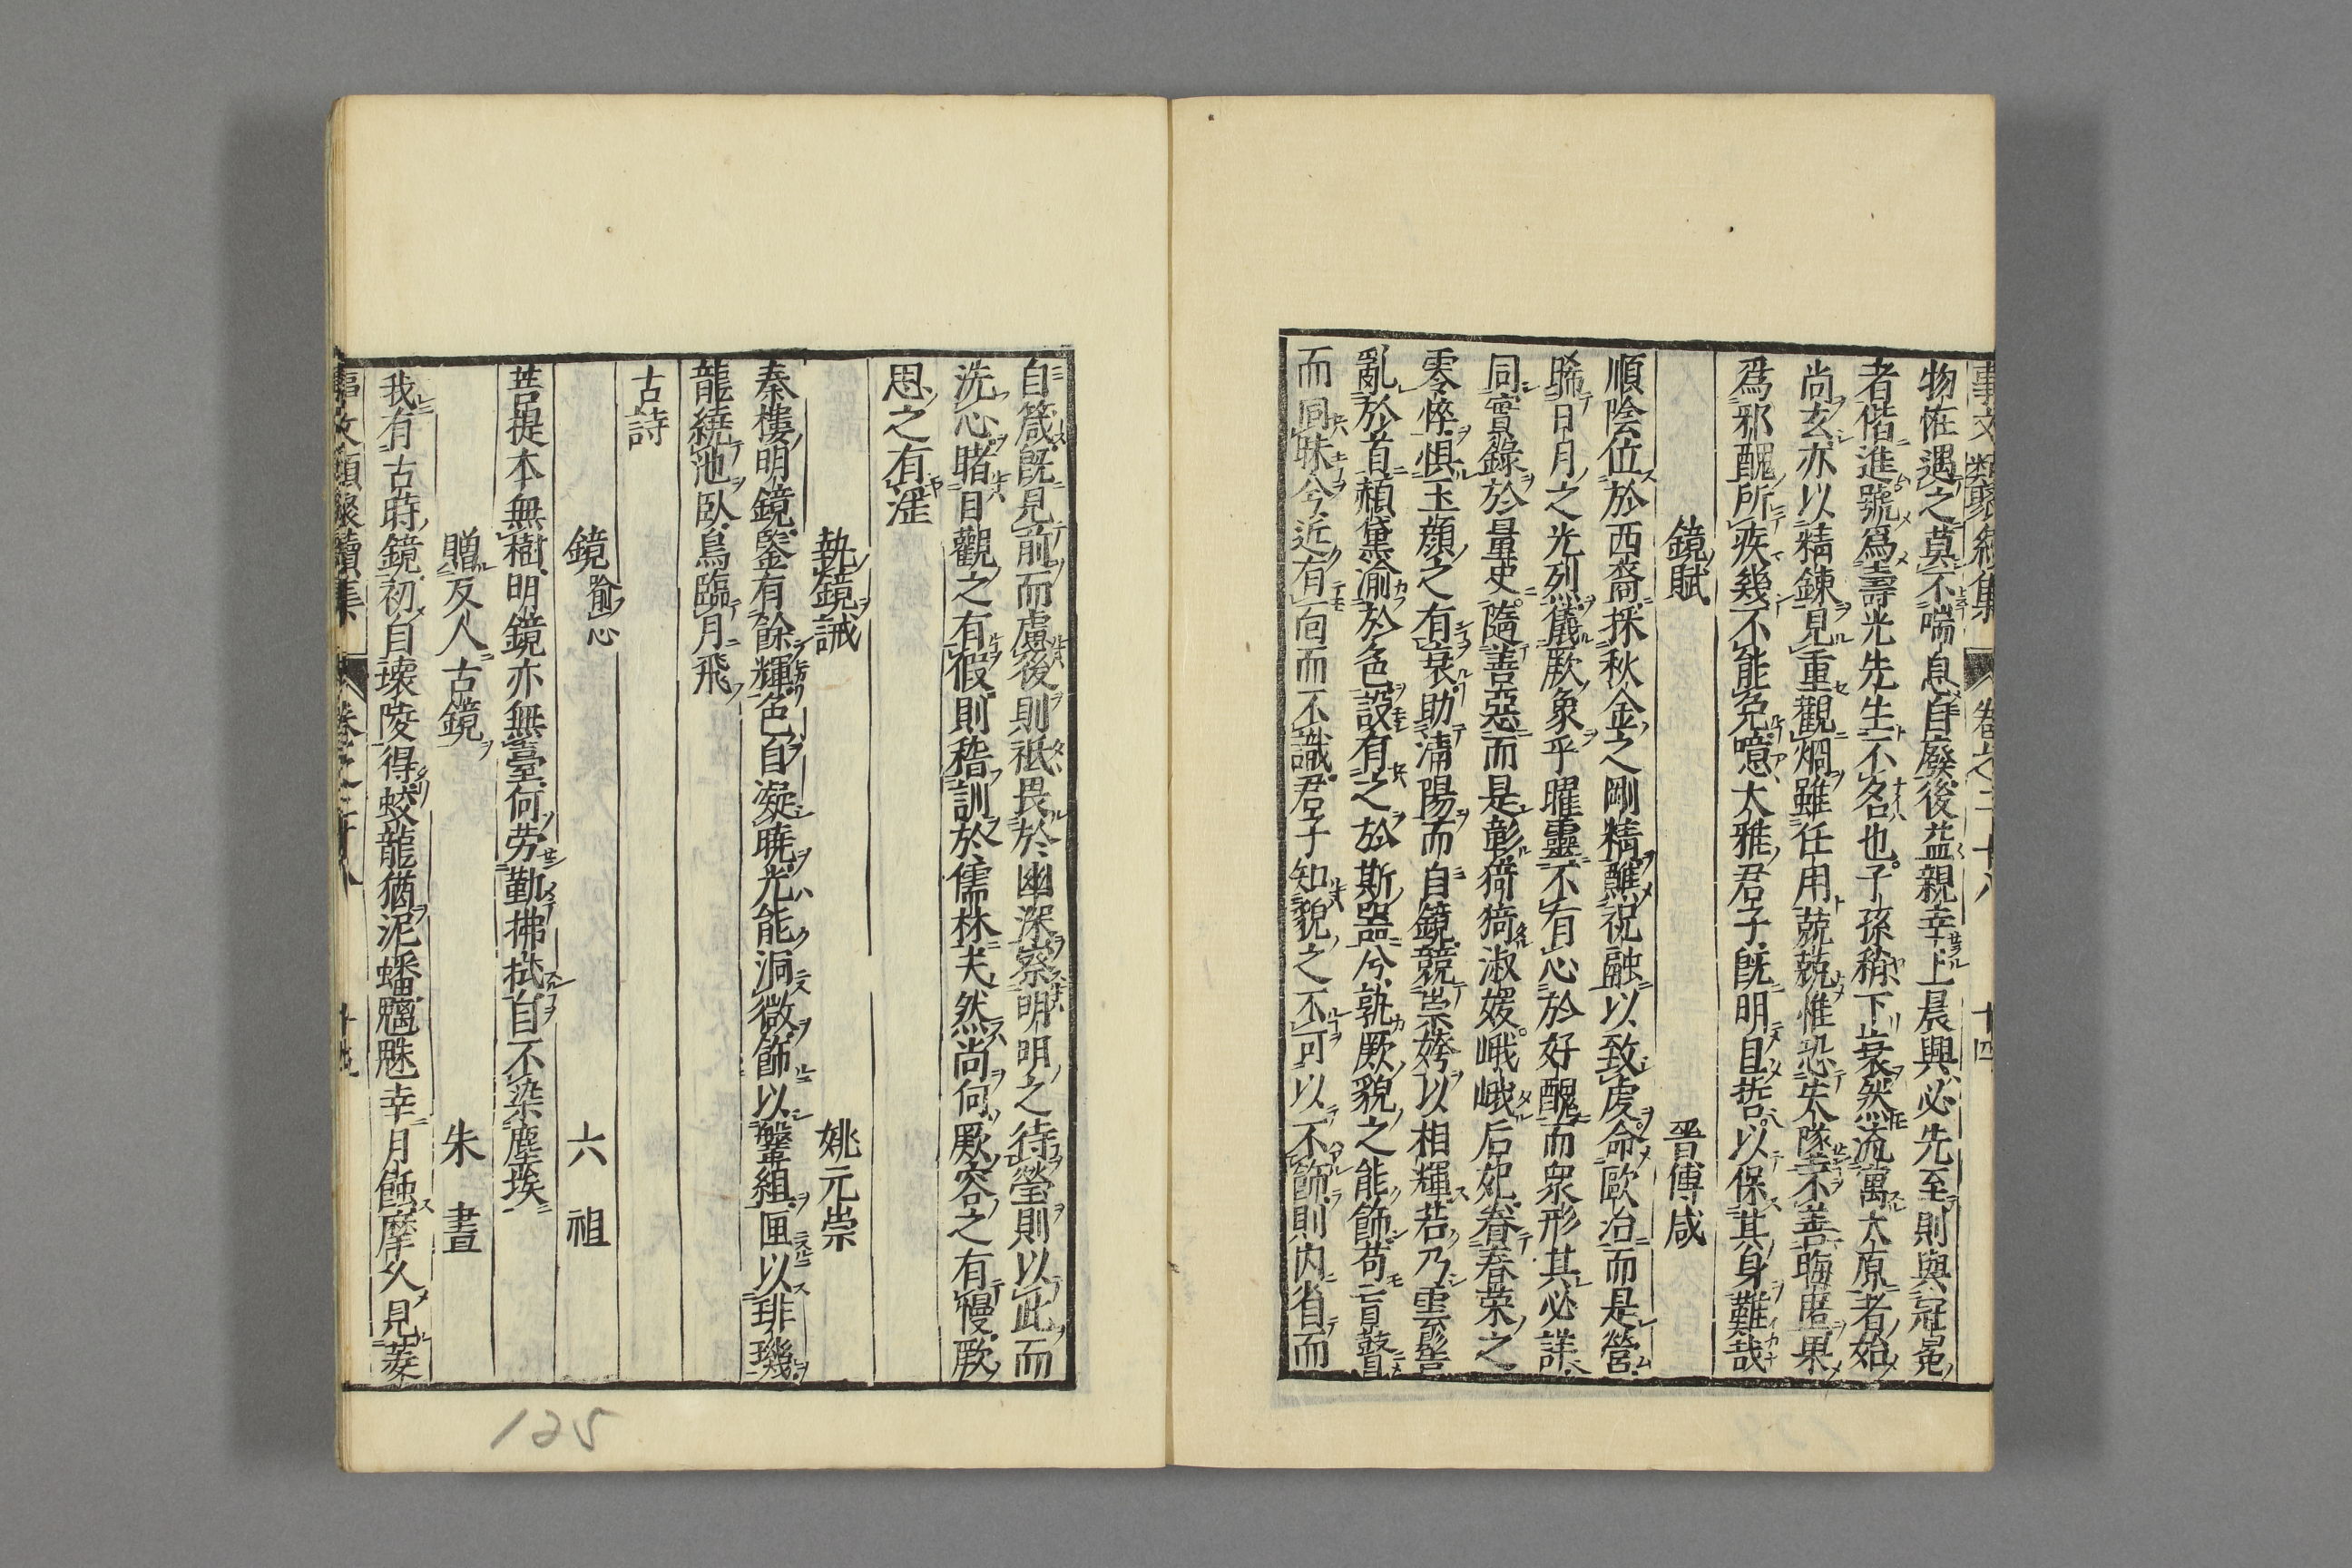 事文類聚續集 卷之二十八 十四
物恠遇之莫不喘息自廢後益親幸上晨興必先至則與冠冕
者偕進號爲壽光先生不名也子孫稱下衰然流寓太原者始
尚玄亦以精鍊見重觀烱雖任用兢兢惟恐失隊至不善晦匿果
爲邪醜所疾幾不能免噫大雅君子旣明且哲以保其身難哉
鏡賦 晉傅咸
順陰位於西裔採秋金之剛精醮祝融以致虔命歐冶而是營
睎日月之光烈儀厥象乎曜靈不有心於好醜而衆形其必詳
同實錄於量史隨善惡而是彰猗猗淑媛峨峨后妃眷春榮之
零悴懼玉顔之有衰助淸陽而自鏡競崇姱以相輝若乃雲髻
亂於首頳黛渝於色設有之於斯器兮孰厥貌之能飾苟盲瞽
而同昧今近有面而不識君子知貌之不可以不飾則内省而
自箴旣見前而慮後則祇畏於幽深察明明之待瑩則以此而
洗心睹日觀之有假則稽訓於儒林夫然尚何厥容之有慢厥
思之有淫
執鏡誡 姚元崇
秦樓明鏡鑒有餘輝色自凝曉光能洞微飾以鞶組匣以琲璣
龍繞池臥鳥臨月飛
古詩
鏡喻心 六祖
菩提本無樹明鏡亦無臺何勞勤拂拭自不染塵埃
贈友人古鏡 朱晝
我有古時鏡初自壊陵得蛟龍猶泥蟠魑魅幸月蝕摩久見菱
事文類聚續集 卷之二十八